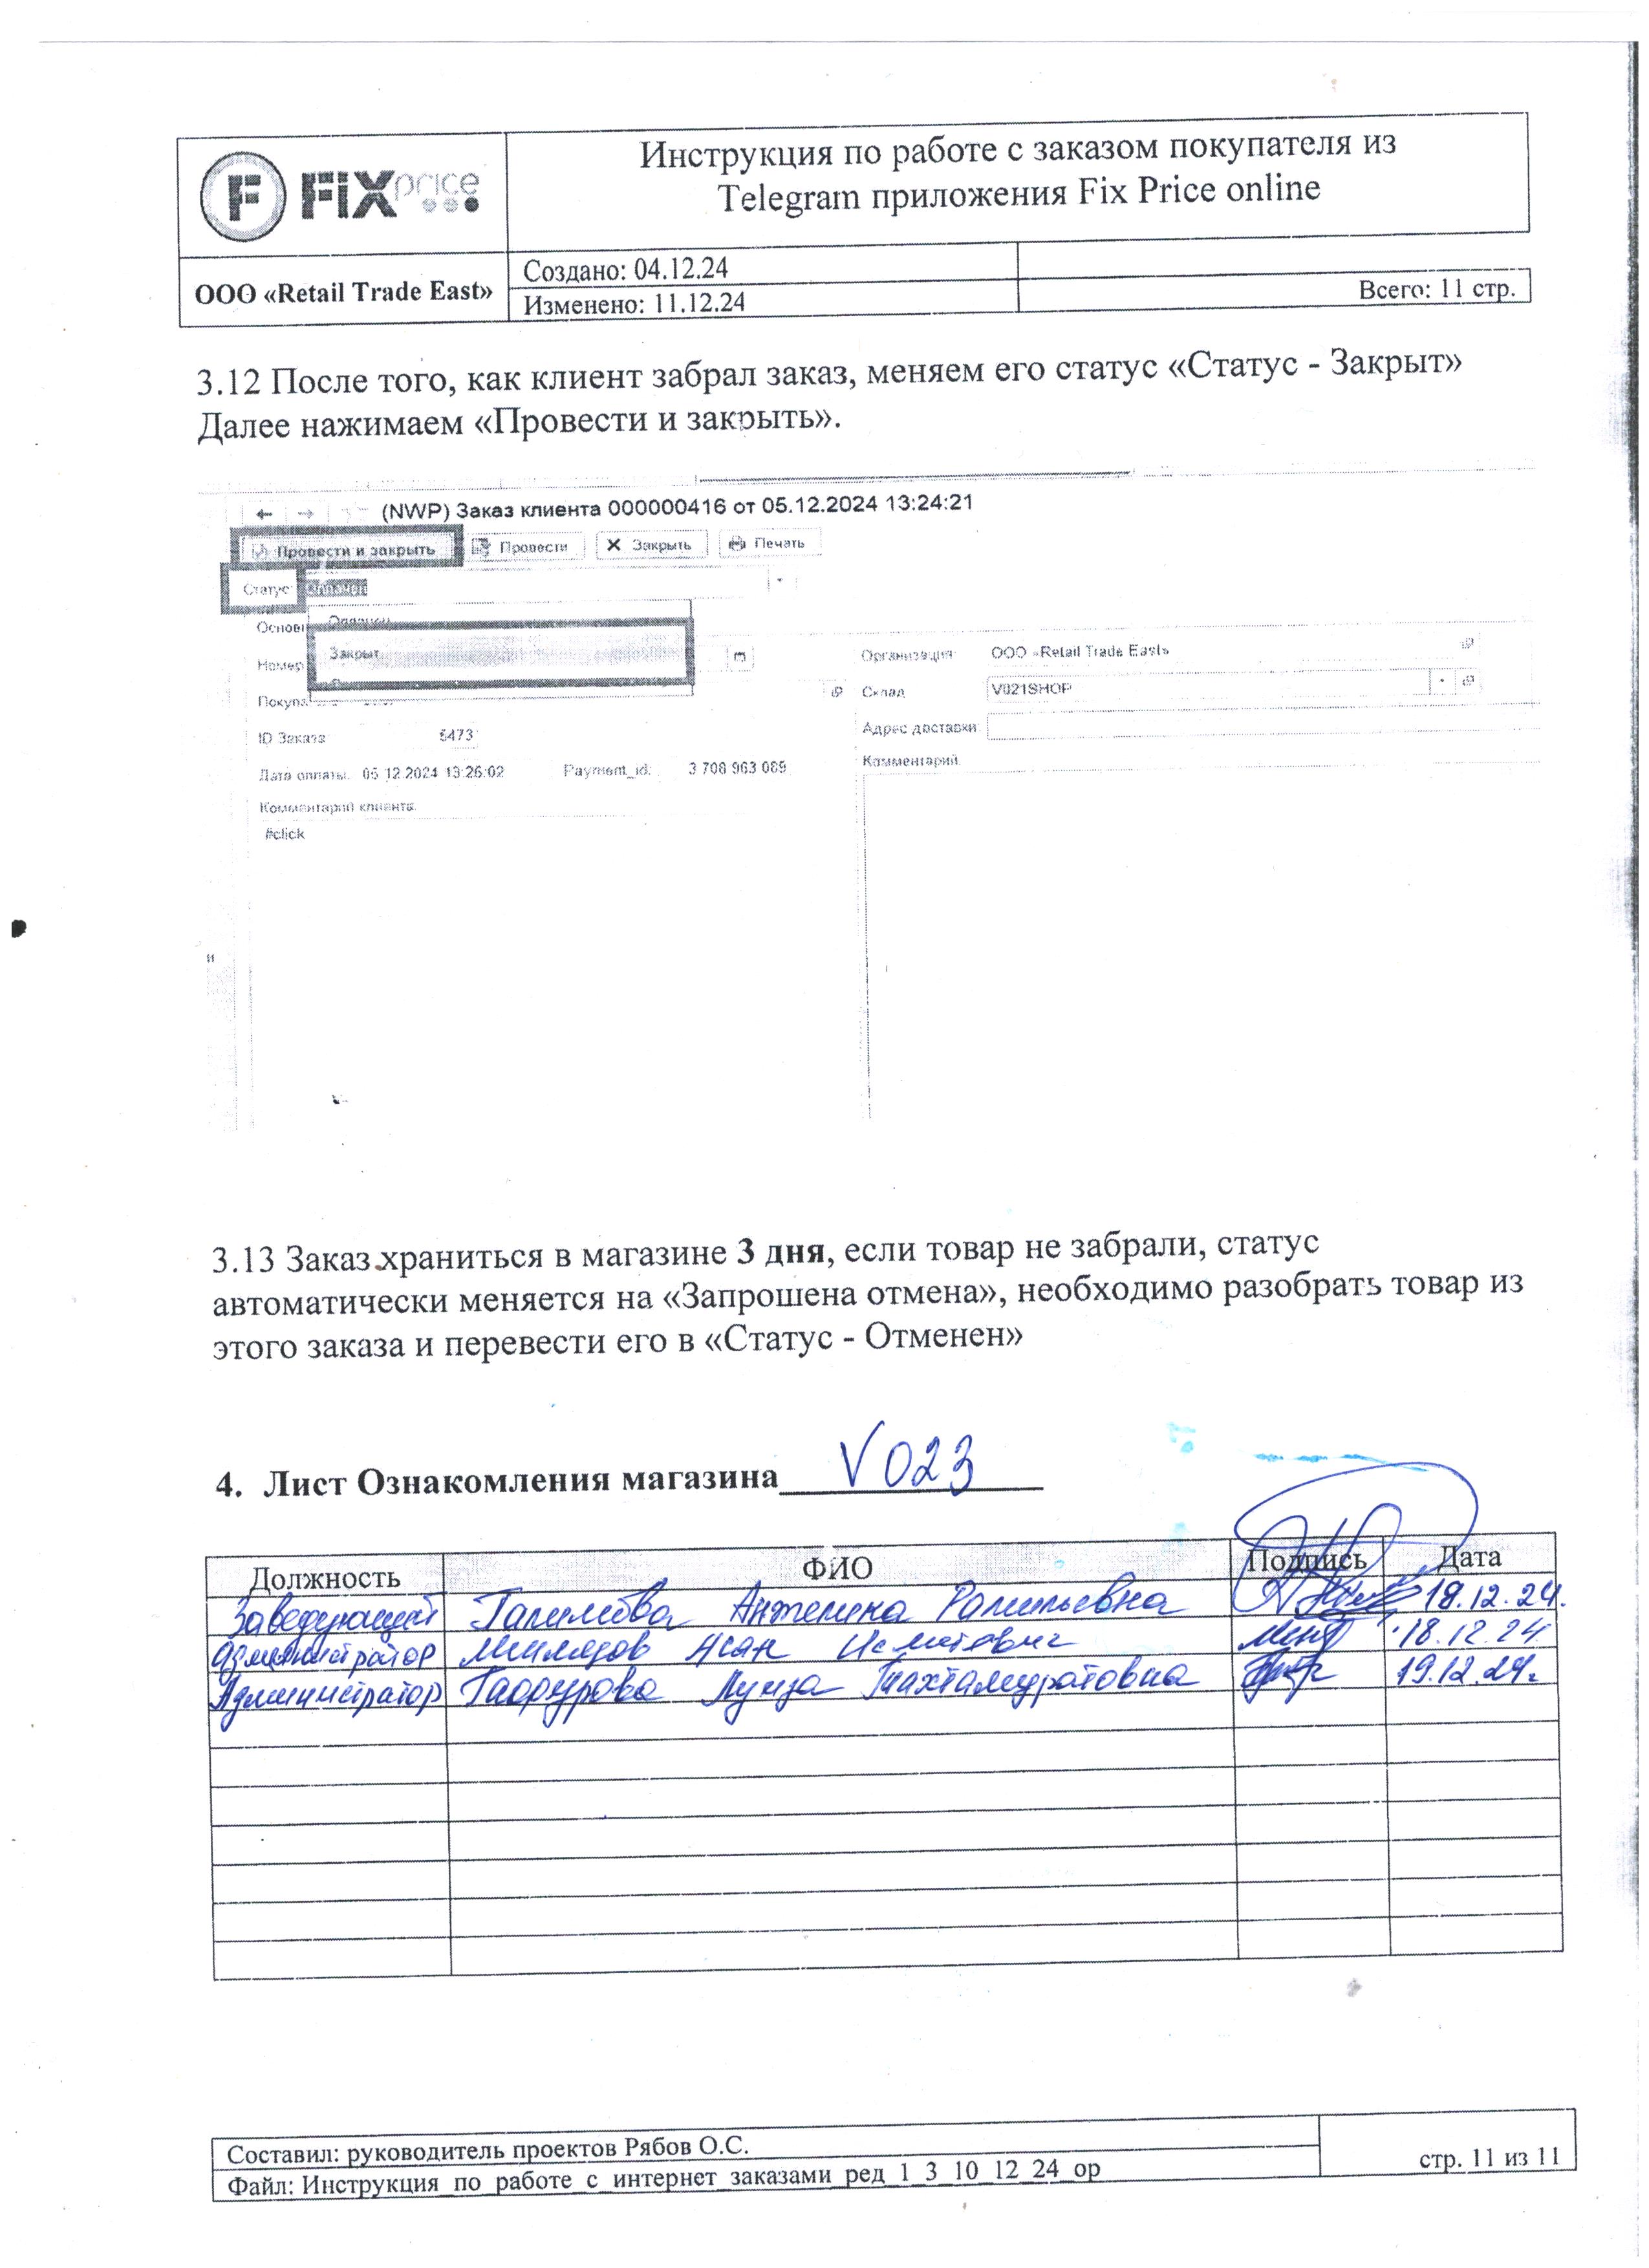 F FiXprice
Инструкция по работе с заказом покупателя из
Telegram приложения Fix Price online
ООО «Retail Trade East»
Создано: 04.12.24
Изменено: 11.12.24
Всего: 11 стр.
3.12 После того, как клиент забрал заказ, меняем его статус «Статус - Закрыт»
Далее нажимаем «Провести и закрыть».
(NWP) Заказ клиента 000000416 от 05.12.2024 13:24:21
Провести и закрыть Провести Закрыть Печать
Статус: Оплачен
Оплачен
Закрыт
Номер
Организация: ООО «Retail Trade East»
Склад V021SHOP
ID Заказа: 5473
Адрес доставки:
Дата оплаты: 05.12.2024 13:26:02 Payment_id: 3 708 963 089
Комментарий
Комментарий клиента:
#click
3.13 Заказ храниться в магазине 3 дня, если товар не забрали, статус
автоматически меняется на «Запрошена отмена», необходимо разобрать товар из
этого заказа и перевести его в «Статус - Отменен»
4. Лист Ознакомления магазина V023
Должность ФИО Подпись Дата
Заведующий Анжелина Рамильевна 19.12.24.
Администратор 18.12.24
Администратор Луиза Тахтамуратовна 19.12.24г
Составил: руководитель проектов Рябов О.С.
Файл: Инструкция_по_работе_с_интернет_заказами_ред_1_3_10_12_24_ор
стр. 11 из 11